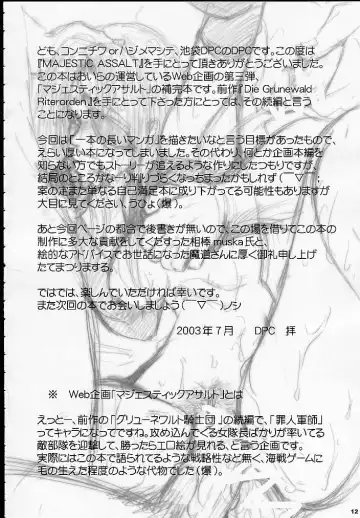 ども、コンニチワ or ハジメマシテ、池袋DPCのDPCです。この度は
『MAJESTIC ASSALT』を手にとって頂きありがとうございました。
この本はおいらの運営しているWeb企画の第三弾、
「マジェスティックアサルト」の補完本です。前作『Die Grunewald
Riterorden』を手にとって下さった方にとっては、その続編と言う
ことになります。
今回は「一本の長いマンガ」を描きたいなと言う目標があったもので、
えらい厚い本になってしまいました。その代わり、何とか企画本編を
知らない方でもストーリーが追えるような作りにしたつもりですが、
結局のところかなーり判りづらくなっちまったかもしれず（￣▽￣;
案の定また単なる自己満足本に成り下がってる可能性もありますが
大目に見てください、うひょ（爆）。
あと今回ページの都合で後書きが無いので、この場を借りてこの本の
制作に多大な貢献をしてくださった相棒muska氏と、
絵的なアドバイスでお世話になった魔道さんに厚く御礼申し上げ
たてまつりまする。
ではでは、楽しんでいただければ幸いです。
また次回の本でお会いしましょう（￣▽￣）ノシ
2003年7月 DPC 拝
※ Web企画「マジェスティックアサルト」とは
えっとー、前作の「グリューネワルト騎士団」の続編で、「罪人軍師」
ってキャラになってですね。攻め込んでくる女隊長ばかりが率いてる
敵部隊を迎撃して、勝ったらエロ絵が見れる、と言う企画です。
実際にはこの本で語られてるような戦略性など無く、海戦ゲームに
毛の生えた程度のような代物でした（爆）。
12